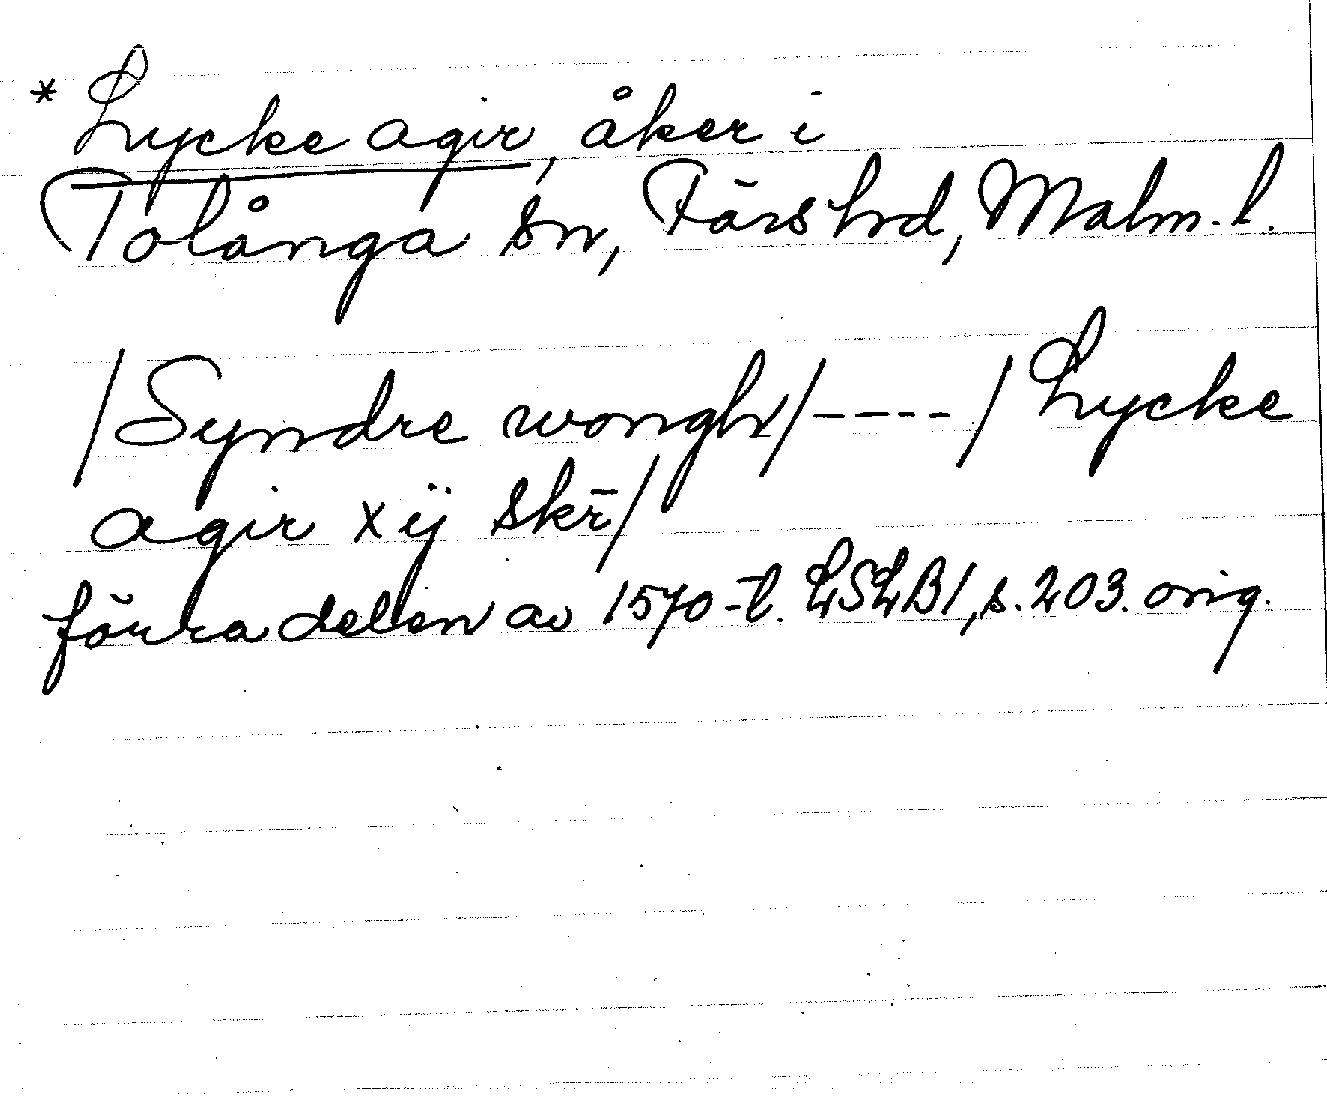 * Lycke agir, åker i
Tolånga sn, Färs hd, Malm. l.
/Syndre wongh/----/Lycke
agir xij skr̄/
förra delen av 1570-t. LSLB1, s. 203. orig.